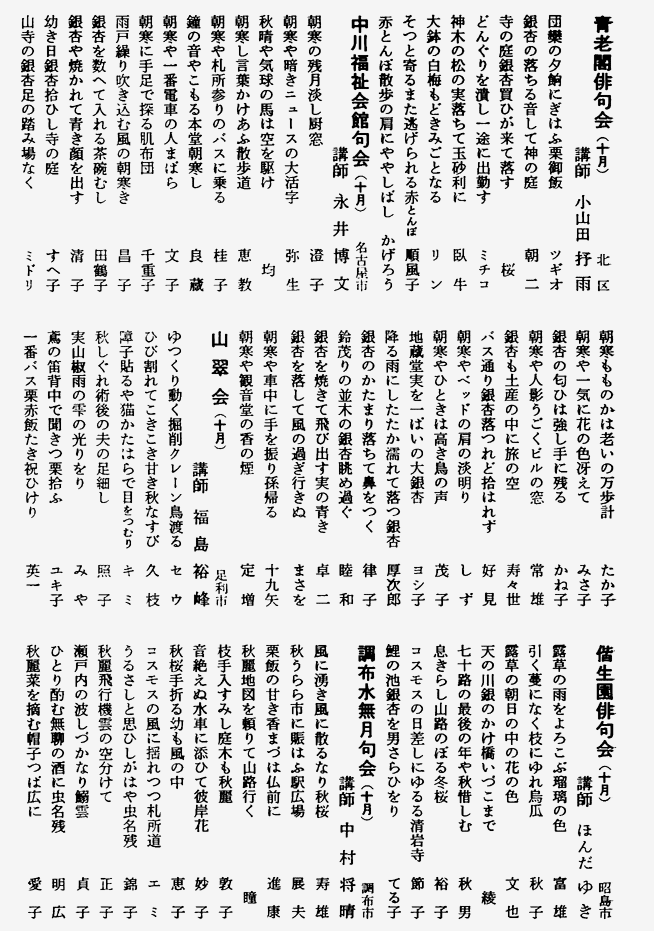 青老閣俳句会（十月） 北区
講師 小山田 抒雨
団欒の夕餉にぎはふ栗御飯 ツギオ
銀杏の落ちる音して神の庭 朝二
寺の庭銀杏買ひが来て落す 桜
どんぐりを潰し一途に出勤す ミチコ
神木の松の実落ちて玉砂利に 臥牛
大鉢の白梅もどきみごとなる リン
そつと寄るまた逃げられる赤とんぼ 順風子
赤とんぼ散歩の肩にややしばし かげろう
中川福祉会館句会（十月） 名古屋市
講師 永井 博文
朝寒の残月淡し厨窓 澄子
朝寒や暗きニュースの大活字 弥生
秋晴や気球の馬は空を駆け 均
朝寒し言葉かけあふ散歩道 恵教
朝寒や札所参りのバスに乗る 桂子
鐘の音やこもる本堂朝寒し 良蔵
朝寒や一番電車の人まばら 文子
朝寒に手足で探る肌布団 千重子
雨戸繰り吹き込む風の朝寒き 昌子
銀杏を数へて入れる茶碗むし 田鶴子
銀杏や焼かれて青き顔を出す 清子
幼き日銀杏拾ひし寺の庭 すへ子
山寺の銀杏足の踏み場なく ミドリ
朝寒もものかは老いの万歩計 たか子
朝寒や一気に花の色冴えて みさ子
銀杏の匂ひは強し手に残る かね子
朝寒や人影うごくビルの窓 常雄
銀杏も土産の中に旅の空 寿々世
バス通り銀杏落つれど拾はれず 好見
朝寒やベッドの肩の淡明り しず
朝寒やひときは高き鳥の声 茂子
地蔵堂実を一ぱいの大銀杏 ヨシ子
降る雨にしたたか濡れて落つ銀杏 厚次郎
銀杏のかたまり落ちて鼻をつく 律子
鈴茂りの並木の銀杏眺め過ぐ 睦和
銀杏を焼きて飛び出す実の青き 卓二
銀杏を落して風の過ぎ行きぬ まさを
朝寒や車中に手を振り孫帰る 十九矢
朝寒や観音堂の香の煙 定増
山翠会（十月） 足利市
講師 福島 裕峰
ゆつくり動く掘削クレーン鳥渡る セウ
ひび割れてこきこき甘き秋なすび 久枝
障子貼るや猫かたはらで目をつむり キミ
秋しぐれ術後の夫の足細し 照子
実山椒雨の雫の光りをり みや
鳶の笛背中で聞きつ栗拾ふ ユキ子
一番バス栗赤飯たき祝ひけり 英一
偕生園俳句会（十月） 昭島市
講師 ほんだ ゆき
露草の雨をよろこぶ瑠璃の色 富雄
引く蔓になく枝にゆれ烏瓜 秋子
露草の朝日の中の花の色 文也
天の川銀のかけ橋いづこまで 綾
七十路の最後の年や秋惜しむ 秋男
息きらし山路のぼる冬桜 裕子
コスモスの日差しにゆるる清岩寺 節子
鯉の池銀杏を男さらひをり てる子
調布水無月句会（十月） 調布市
講師 中村 将晴
風に湧き風に散るなり秋桜 寿雄
秋うらら市に賑はふ駅広場 展夫
栗飯の甘き香まづは仏前に 進康
秋麗地図を頼りて山路行く 瞳
枝手入すみし庭木も秋麗 敦子
音絶えぬ水車に添ひて彼岸花 妙子
秋桜手折る幼も風の中 恵子
コスモスの風に揺れつつ札所道 エミ
うるさしと思ひしがはや虫名残 錦子
秋麗飛行機雲の空分けて 正子
瀬戸内の波しづかなり鰯雲 貞子
ひとり酌む無聊の酒に虫名残 明広
秋麗菜を摘む帽子つば広に 愛子